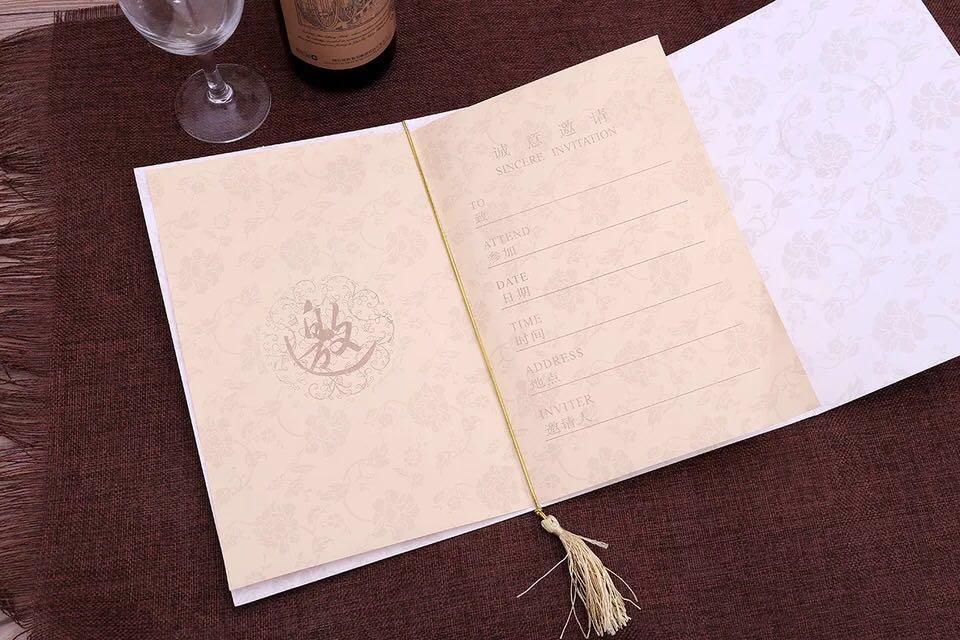 邀
诚意邀请
SINCERE INVITATION
TO
致
ATTEND
参加
DATE
日期
TIME
时间
ADDRESS
地点
INVITER
邀请人